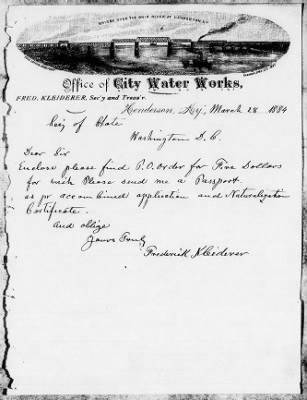 BRIDGE OVER THE OHIO RIVER AT HENDERSON, KY.
Office of City Water Works,
FRED. KLEIDERER, Sec'y and Treas'r.
Henderson, Ky., March 28 1884
Sec'y of State
Washington D. C.
Dear Sir
Enclose please find P.O. Order for Five Dollars
for wich Please send me a Passport
as pr accombined application and Naturalization
Certificate.
and oblige
Yours Truly
Frederick Kleiderer